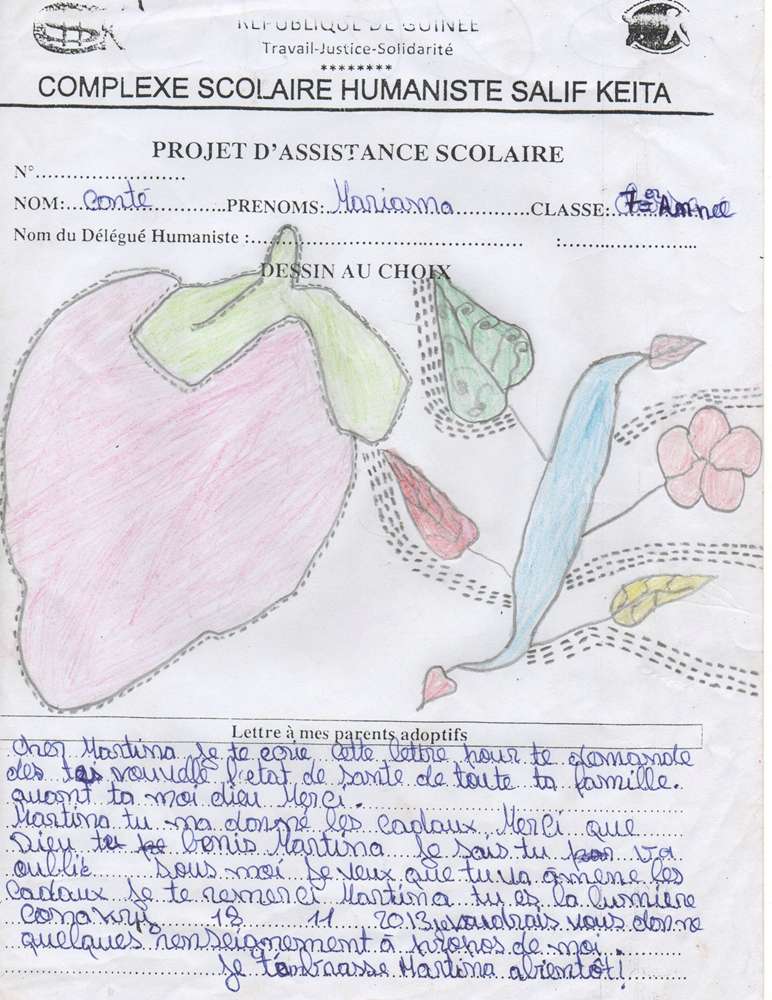 REPUBLIQUE DE GUINEE
Travail-Justice-Solidarité
********
COMPLEXE SCOLAIRE HUMANISTE SALIF KEITA
PROJET D'ASSISTANCE SCOLAIRE
N°........................
NOM:...Conté............PRENOMS:.Mariama............CLASSE:.7er Année
Nom du Délégué Humaniste :.............................................. :.......................
DESSIN AU CHOIX
Lettre à mes parents adoptifs
Cher Martina je te ecrie cette lettre pour te demande
des tes nouvelle l'etat de santé de toute ta famille.
quant ta moi dieu Merci.
Martina tu ma donné les cadaux Merci que
Dieu te benis Martina je sais tu va
oublié sous moi je veux que tu va amene les
cadaux je te remerci Martina tu es la lumiere
Conakry 18 11 2013 je voudrais vous donne
quelques renseignement à propos de moi.
je t'ambrasse Martina abientôt!